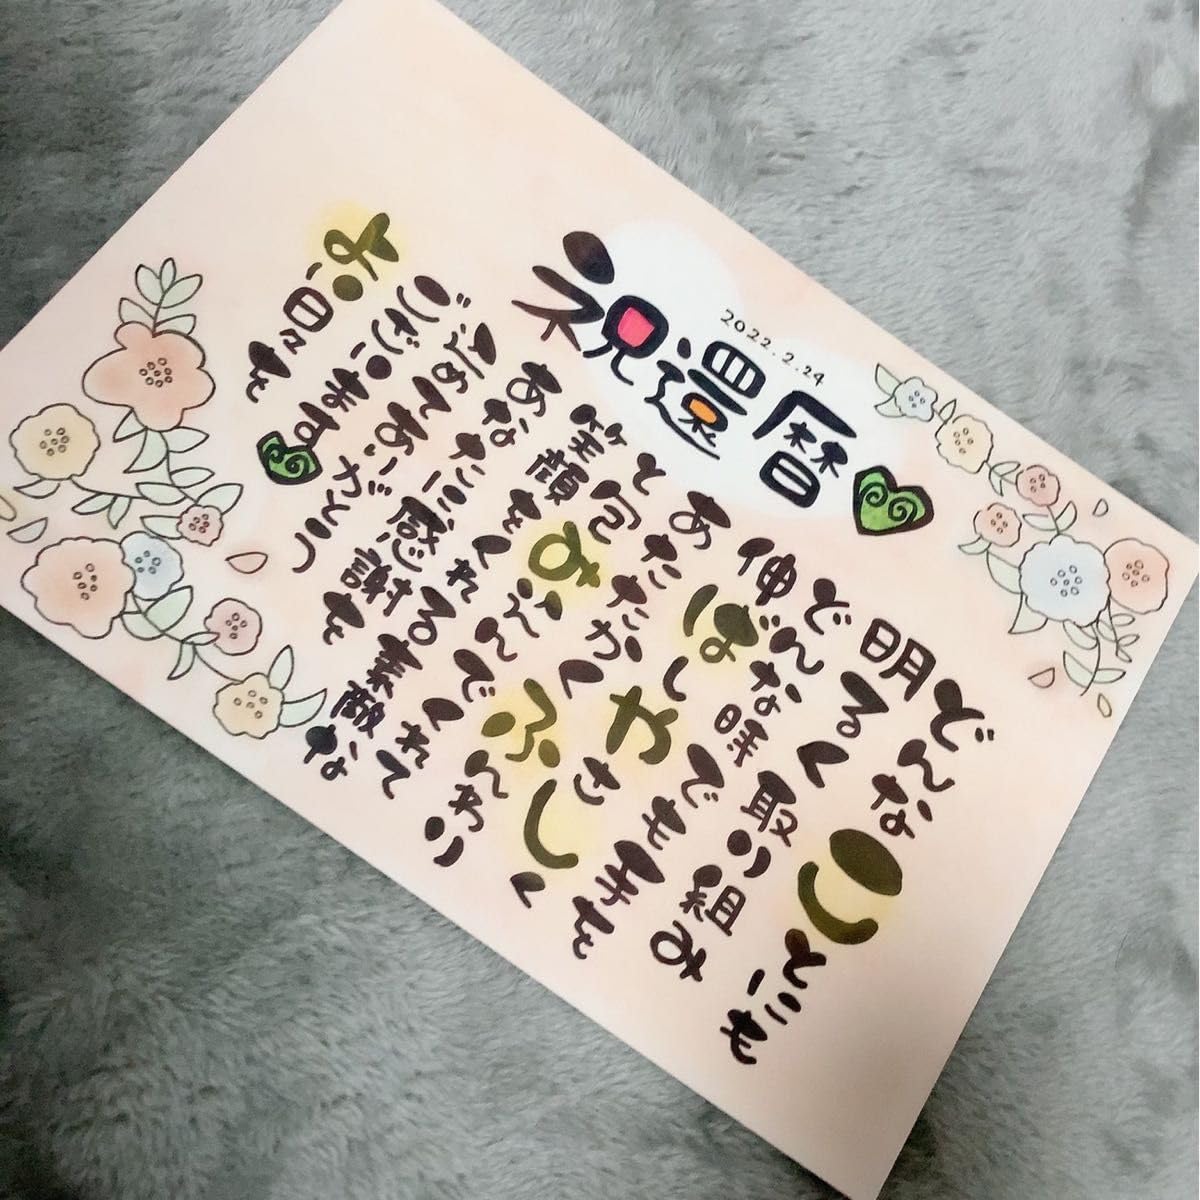 2022.2.24
祝還暦
どんなことにも
明るく取り組み
どんな時でも手を
伸ばしやさしく
あたたかくふんわり
と包 こんでくれて
笑顔をくれる素敵な
あなたに感謝を
こめてありがとう
ございます
よい日々を